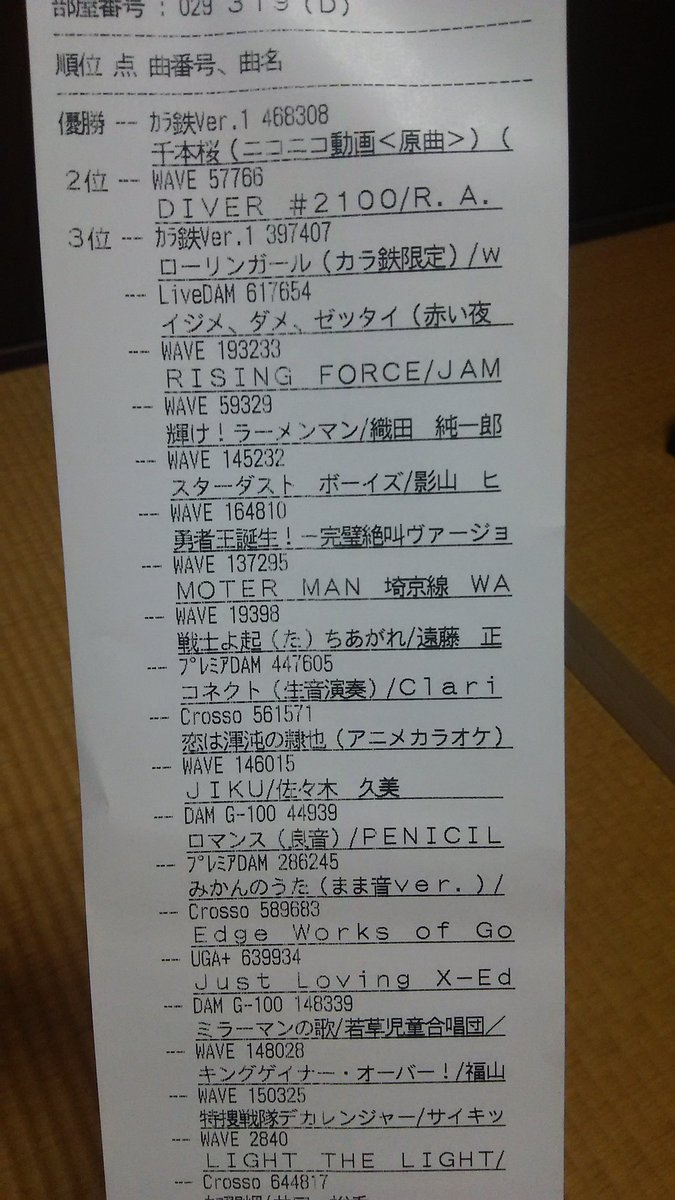 部屋番号 : 029 319 (D)
順位 点 曲番号、曲名
優勝 -- ｶﾗ鉄Ver.1 468308
千本桜(ニコニコ動画<原曲>) (
2位 -- WAVE 57766
DIVER #2100/R.A.
3位 -- ｶﾗ鉄Ver.1 397407
ローリンガール(カラ鉄限定)/w
-- LiveDAM 617654
イジメ、ダメ、ゼッタイ(赤い夜
-- WAVE 193233
RISING FORCE/JAM
-- WAVE 59329
輝け!ラーメンマン/織田 純一郎
-- WAVE 145232
スターダスト ボーイズ/影山 ヒ
-- WAVE 164810
勇者王誕生!-完璧絶叫ヴァージョ
-- WAVE 137295
MOTER MAN 埼京線 WA
-- WAVE 19398
戦士よ起(た)ちあがれ/遠藤 正
-- ﾌﾟﾚﾐｱDAM 447605
コネクト(生音演奏)/Clari
-- Crosso 561571
恋は渾沌の隷也(アニメカラオケ)
-- WAVE 146015
JIKU/佐々木 久美
-- DAM G-100 44939
ロマンス(良音)/PENICIL
-- ﾌﾟﾚﾐｱDAM 286245
みかんのうた(まま音ver.)/
-- Crosso 589683
Edge Works of Go
-- UGA+ 639934
Just Loving X-Ed
-- DAM G-100 148339
ミラーマンの歌/若草児童合唱団/
-- WAVE 148028
キングゲイナー・オーバー!/福山
-- WAVE 150325
特捜戦隊デカレンジャー/サイキッ
-- WAVE 2840
LIGHT THE LIGHT/
-- Crosso 644817